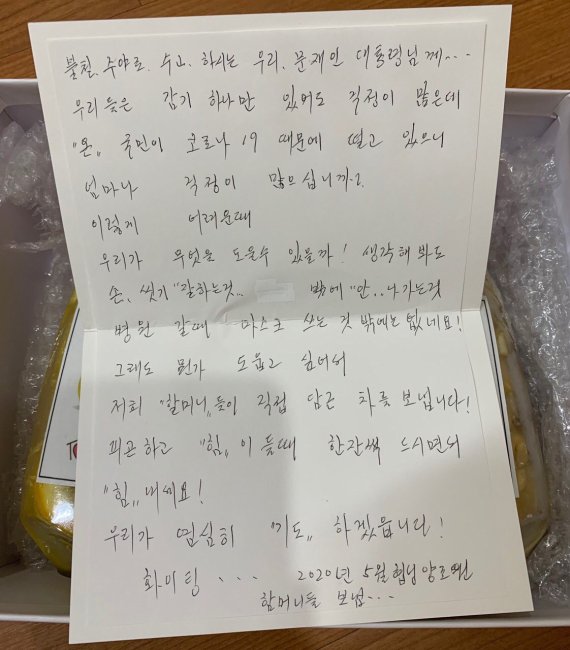 불철, 주야로, 수고, 하시는 우리, 문재인 대통령님께...
우리들은 감기 하나만 있어도 걱정이 많은데
"온" 국민이 코로나 19 때문에 떨고 있으니
얼마나 걱정이 많으십니까?
이렇게 어려운때
우리가 무엇을 도울수 있을까! 생각해 봐도
손, 씻기 "잘하는것... 밖에 "안" 나가는것
병원 갈때 마스크 쓰는 것 밖에는 없네요!
그래도 뭔가 돕고 싶어서
저희 "할머니"들이 직접 담근 차를 보냅니다!
피곤하고 "힘" 이 들때 한잔씩 드시면서
"힘" 내세요!
우리가 열심히 "기도" 하겠읍니다!
화이팅 ... 2020년 5월
할머니들 보냄...